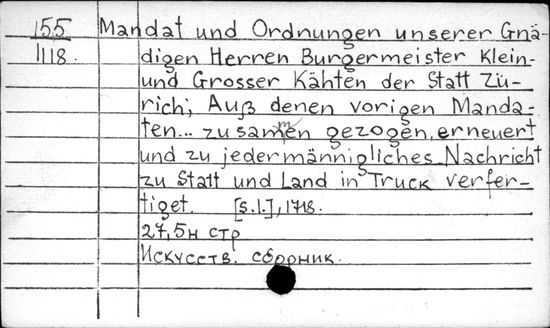 155 Mandat und Ordnungen unserer Gnä-
1118. digen Herren Burgermeister Klein-
und Grosser Kähten der Statt Zü-
rich; Auß denen vorigen Manda-
ten... zusammen gezogen, erneuert
und zu jedermännigliches Nachricht
zu Statt und Land in Truck verfer-
tiget. [s.l.], 1718.
27,5н стр
Искусств. сборник.